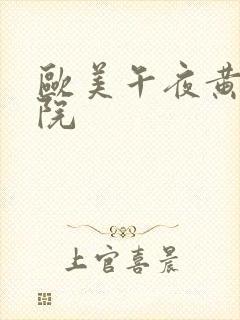 歐美午夜黄
院
上官喜晨